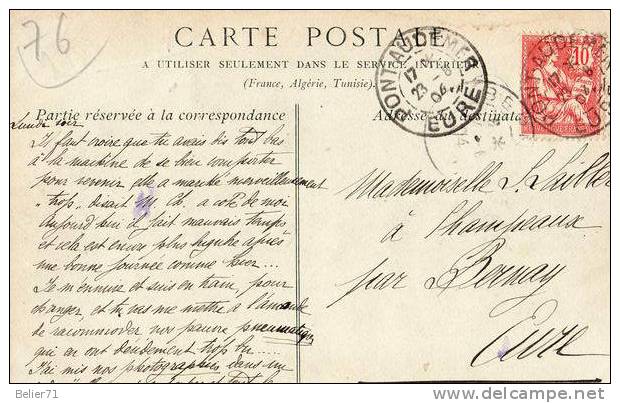 76
CARTE POSTALE
A UTILISER SEULEMENT DANS LE SERVICE INTÉRIEUR
(France, Algérie, Tunisie).
PONT-AUDEMER
17
23
04
EURE
10
Partie réservée à la correspondance
Adresse du destinata
Lundi soir
Il faut croire que tu avais dis tout bas
à la machine de se bien comporter
pour revenir elle a marché merveilleusement
"trop" disait M. Ch. a coté de moi
Aujourd'hui il fait mauvais temps
et cela est encore plus après
une bonne journée comme hier...
Je m'ennuie et suis en train, pour
changer et tu vas me mettre à l'amende
de raccommoder nos pauvres pneumatiques
qui en ont trop bu.....
J'ai mis nos photographies dans un
Mademoiselle S.
à
par Bernay
Eure
Belier71
delcampe.net